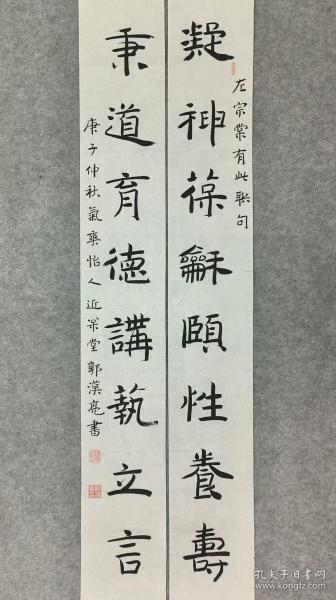 凝神葆龢頤性養壽
左宗棠有此聯句
秉道育德講埶立言
庚子仲秋氣爽怡人近
堂郭漢亮書
孔夫子旧书网
www.kongfz.com